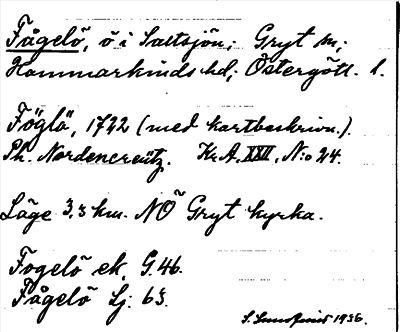 Fågelö, ö i Saltsjön; Gryt sn;
Hammarkinds hd; Östergötl. l.
Föglö, 1722 (med kartbeskrivn.).
Ph. Nordencreutz. Kr. A. XXII, N:o 24.
Läge 3,5 km. NÖ Gryt kyrka.
Fogelö ek. G. 46.
Fågelö Lj: 63.
1936.